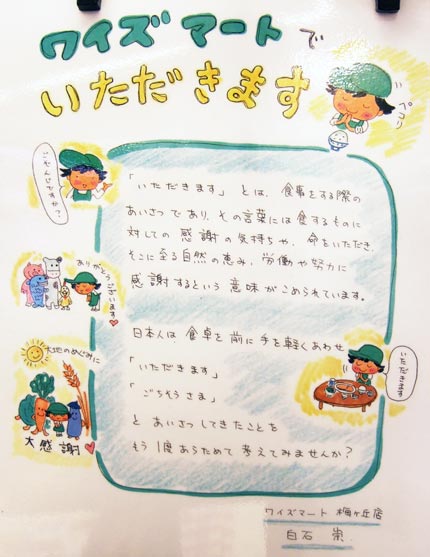 ワイズマートで
いただきます
ペコリ
ごぞんじですか?
「いただきます」とは、食事をする際の
あいさつであり、その言葉には食するものに
対しての感謝の気持ちや、命をいただき、
そこに至る自然の恵み、労働や努力に
感謝するという意味がこめられています。
ありがとう
ございます
日本人は食卓を前に手を軽くあわせ
「いただきます」
「ごちそうさま」
とあいさつしてきたことを
もう1度あらためて考えてみませんか?
いただきます
大地のめぐみに
大感謝
ワイズマート 梅ヶ丘店
白石 崇